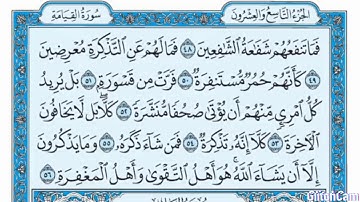 الجُزْءُ التَّاسِعُ وَالعِشْرُونَ سُورَةُ القِيَامَةِ
فَمَا تَنفَعُهُمْ شَفَٰعَةُ ٱلشَّٰفِعِينَ ٤٨ فَمَا لَهُمْ عَنِ ٱلتَّذْكِرَةِ مُعْرِضِينَ
٤٩ كَأَنَّهُمْ حُمُرٌ مُّسْتَنفِرَةٌ ٥٠ فَرَّتْ مِن قَسْوَرَةٍ ٥١ بَلْ يُرِيدُ
كُلُّ ٱمْرِئٍ مِّنْهُمْ أَن يُؤْتَىٰ صُحُفًا مُّنَشَّرَةً ٥٢ كَلَّا بَل لَّا يَخَافُونَ
ٱلْءَاخِرَةَ ٥٣ كَلَّآ إِنَّهُۥ تَذْكِرَةٌ ٥٤ فَمَن شَآءَ ذَكَرَهُۥ ٥٥ وَمَا يَذْكُرُونَ
إِلَّآ أَن يَشَآءَ ٱللَّهُ هُوَ أَهْلُ ٱلتَّقْوَىٰ وَأَهْلُ ٱلْمَغْفِرَةِ ٥٦
GlitchCam